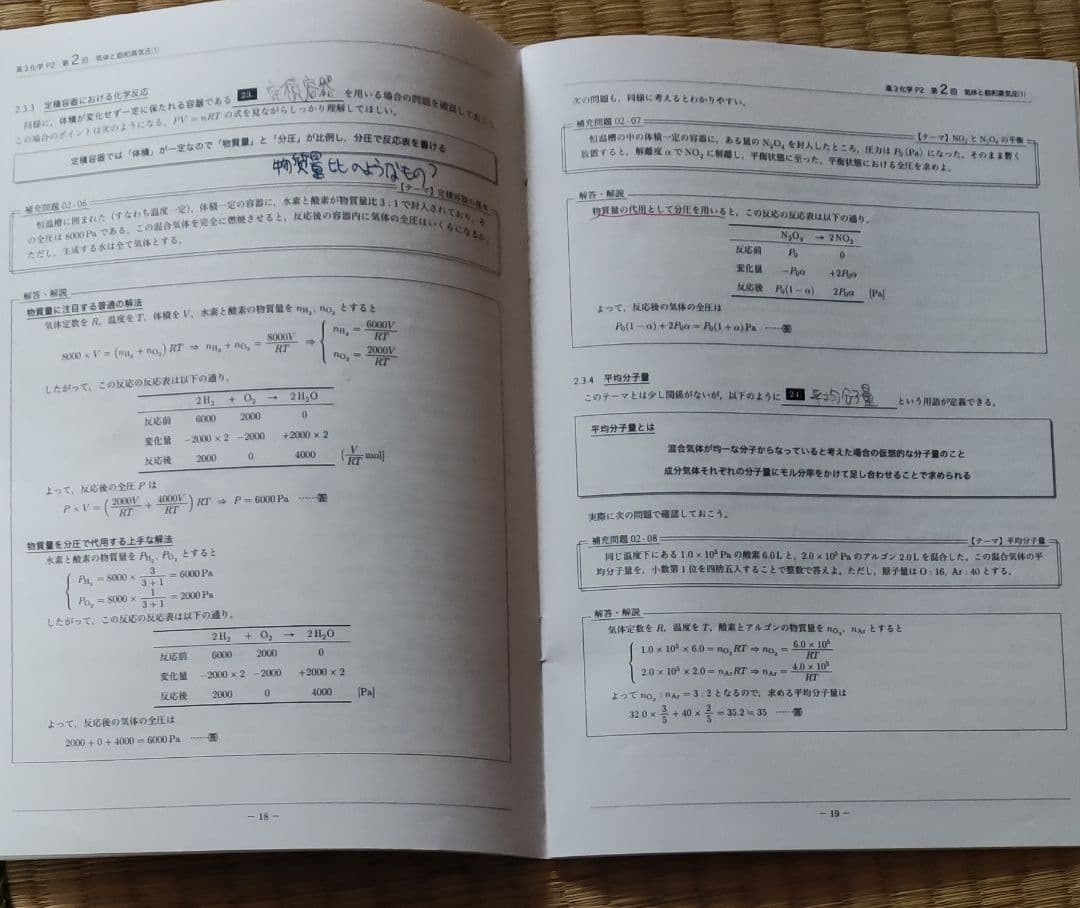 高3化学P2 第2回 気体と飽和蒸気圧(1)
2.3.3 定積容器における化学反応
同様に，体積が変化せず一定に保たれる容器である 23. 定積容器 を用いる場合の問題を確認しておこう．
この場合のポイントは次のようになる．PV = nRT の式を見ながらしっかり理解してほしい．
定積容器では「体積」が一定なので「物質量」と「分圧」が比例し，分圧で反応表を書ける
物質量比のようなもの？
補充問題 02-06 【テーマ】定積容器の基本
恒温槽に囲まれた (すなわち温度一定)，体積一定の容器に，水素と酸素が物質量比 3 : 1 で封入されており，そ
の全圧は 8000 Pa である．この混合気体を完全に燃焼させると，反応後の容器内に気体の全圧はいくらになるか．
ただし，生成する水は全て気体とする．
解答・解説
物質量に注目する普通の解法
気体定数を R，温度を T，体積を V，水素と酸素の物質量を nH₂, nO₂ とすると
8000 × V = (nH₂ + nO₂) RT ⇒ nH₂ + nO₂ = 8000V/RT ⇒ { nH₂ = 6000V/RT
nO₂ = 2000V/RT
したがって，この反応の反応表は以下の通り．
2H₂ + O₂ → 2H₂O
反応前 6000 2000 0
変化量 −2000 × 2 −2000 +2000 × 2
反応後 2000 0 4000 [V/RT mol]
よって，反応後の全圧 P は
P × V = (2000V/RT + 4000V/RT) RT ⇒ P = 6000 Pa ……答
物質量を分圧で代用する上手な解法
水素と酸素の物質量を PH₂, PO₂ とすると
{ PH₂ = 8000 × 3/3+1 = 6000 Pa
PO₂ = 8000 × 1/3+1 = 2000 Pa
したがって，この反応の反応表は以下の通り．
2H₂ + O₂ → 2H₂O
反応前 6000 2000 0
変化量 −2000 × 2 −2000 +2000 × 2
反応後 2000 0 4000 [Pa]
よって，反応後の気体の全圧は
2000 + 0 + 4000 = 6000 Pa ……答
− 18 −
高3化学P2 第2回 気体と飽和蒸気圧(1)
次の問題も，同様に考えるとわかりやすい．
補充問題 02-07 【テーマ】NO₂ と N₂O₄ の平衡
恒温槽の中の体積一定の容器に，ある量の N₂O₄ を封入したところ，圧力は P₀ (Pa) になった．そのまま暫く
放置すると，解離度 α で NO₂ に解離し，平衡状態に至った．平衡状態における全圧を求めよ．
解答・解説
物質量の代用として分圧を用いると，この反応の反応表は以下の通り．
N₂O₄ → 2NO₂
反応前 P₀ 0
変化量 −P₀α +2P₀α
反応後 P₀(1 − α) 2P₀α [Pa]
よって，反応後の気体の全圧は
P₀(1 − α) + 2P₀α = P₀(1 + α) Pa ……答
2.3.4 平均分子量
このテーマとは少し関係がないが，以下のように 24. 平均分子量 という用語が定義できる．
平均分子量とは
混合気体が均一な分子からなっていると考えた場合の仮想的な分子量のこと
成分気体それぞれの分子量にモル分率をかけて足し合わせることで求められる
実際に次の問題で確認しておこう．
補充問題 02-08 【テーマ】平均分子量
同じ温度下にある 1.0 × 10⁵ Pa の酸素 6.0 L と，2.0 × 10⁵ Pa のアルゴン 2.0 L を混合した．この混合気体の平
均分子量を，小数第 1 位を四捨五入することで整数で答えよ．ただし，原子量は O : 16, Ar : 40 とする．
解答・解説
気体定数を R，温度を T，酸素とアルゴンの物質量を nO₂, nAr とすると
{ 1.0 × 10⁵ × 6.0 = nO₂RT ⇒ nO₂ = 6.0 × 10⁵/RT
2.0 × 10⁵ × 2.0 = nArRT ⇒ nAr = 4.0 × 10⁵/RT
よって nO₂ : nAr = 3 : 2 となるので，求める平均分子量は
32.0 × 3/5 + 40 × 2/5 = 35.2 ≒ 35 ……答
− 19 −